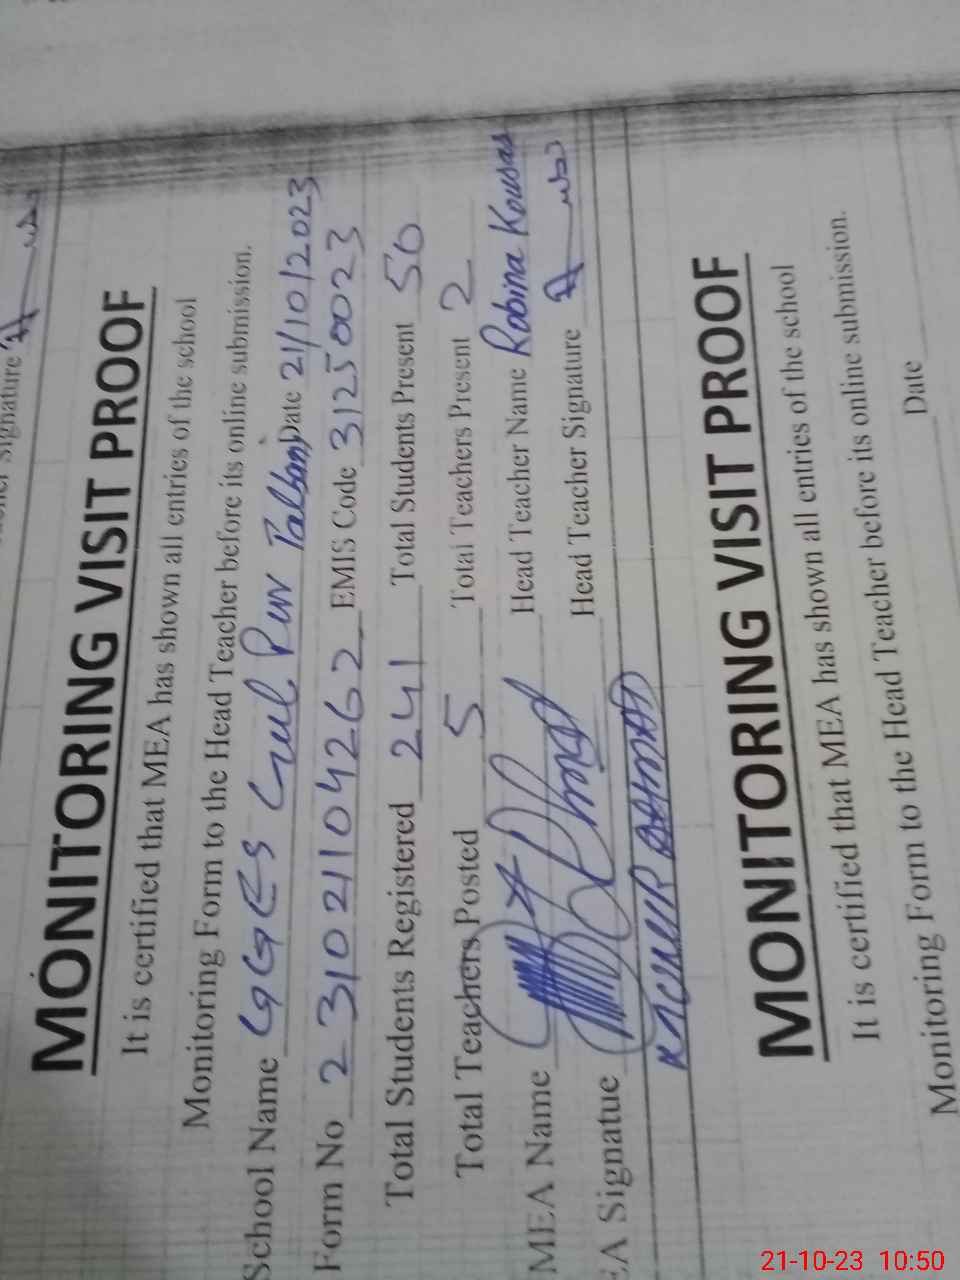 Signature
MONITORING VISIT PROOF
It is certified that MEA has shown all entries of the school
Monitoring Form to the Head Teacher before its online submission.
School Name GGES Gul Pur Date 21/10/2023
Form No 231021104262 EMIS Code 31250023
Total Students Registered 241 Total Students Present 50
Total Teachers Posted 5 Total Teachers Present 2
MEA Name Head Teacher Name Robina Kousas
EA Signatue Head Teacher Signature
MONITORING VISIT PROOF
It is certified that MEA has shown all entries of the school
Monitoring Form to the Head Teacher before its online submission.
Date
21-10-23 10:50